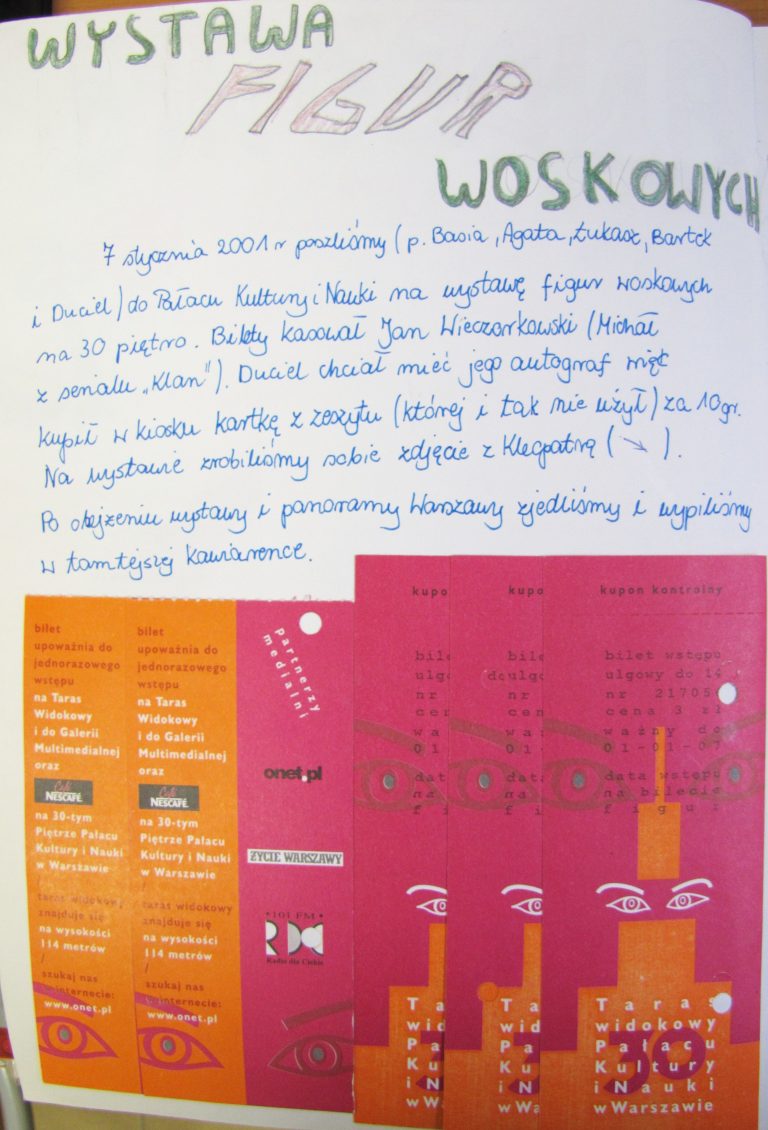 WYSTAWA
FIGUR
WOSKOWYCH
7 stycznia 2001 r poszliśmy (p. Basia, Agata, Łukasz, Bartek
i Duciel) do Pałacu Kultury i Nauki na wystawę figur woskowych
na 30 piętro. Bilety kasował Jan Wieczorkowski (Michał
z serialu „Klan"). Duciel chciał mieć jego autograf więc
kupił w kiosku kartkę z zeszytu (której i tak nie użył) za 10 gr.
Na wystawie zrobiliśmy sobie zdjęcie z Kleopatrą (↘).
Po obejżeniu wystawy i panoramy Warszawy zjedliśmy i wypiliśmy
w tamtejszej kawiarence.
bilet
upoważnia do
jednorazowego
wstępu
na Taras
Widokowy
i do Galerii
Multimedialnej
oraz
Café
NESCAFÉ
na 30-tym
Piętrze Pałacu
Kultury i Nauki
w Warszawie
/
taras widokowy
znajduje się
na wysokości
114 metrów
/
szukaj nas
w internecie:
www.onet.pl
bilet
upoważnia do
jednorazowego
wstępu
na Taras
Widokowy
i do Galerii
Multimedialnej
oraz
Café
NESCAFÉ
na 30-tym
Piętrze Pałacu
Kultury i Nauki
w Warszawie
/
taras widokowy
znajduje się
na wysokości
114 metrów
/
szukaj nas
w internecie:
www.onet.pl
partnerzy
medialni
onet.pl
ŻYCIE WARSZAWY
101 FM
RDC
Radio dla Ciebie
kupo
bile
ulgo
nr
cen
wa
01
dat
na
fi
Ta
wid
Pa
Ku
i N
w Wa
kupo
bile
doulgo
nr
cen
wa
01-
dat
na
fi
Ta
wid
Pa
Ku
i N
w Wa
kupon kontrolny
bilet wstępu
ulgowy do 14
nr 21705
cena 3 zł
ważny do
01-01-07
data wstępu
na bilecie
figur
30
Taras
widokowy
Pałacu
Kultury
i Nauki
w Warszawie